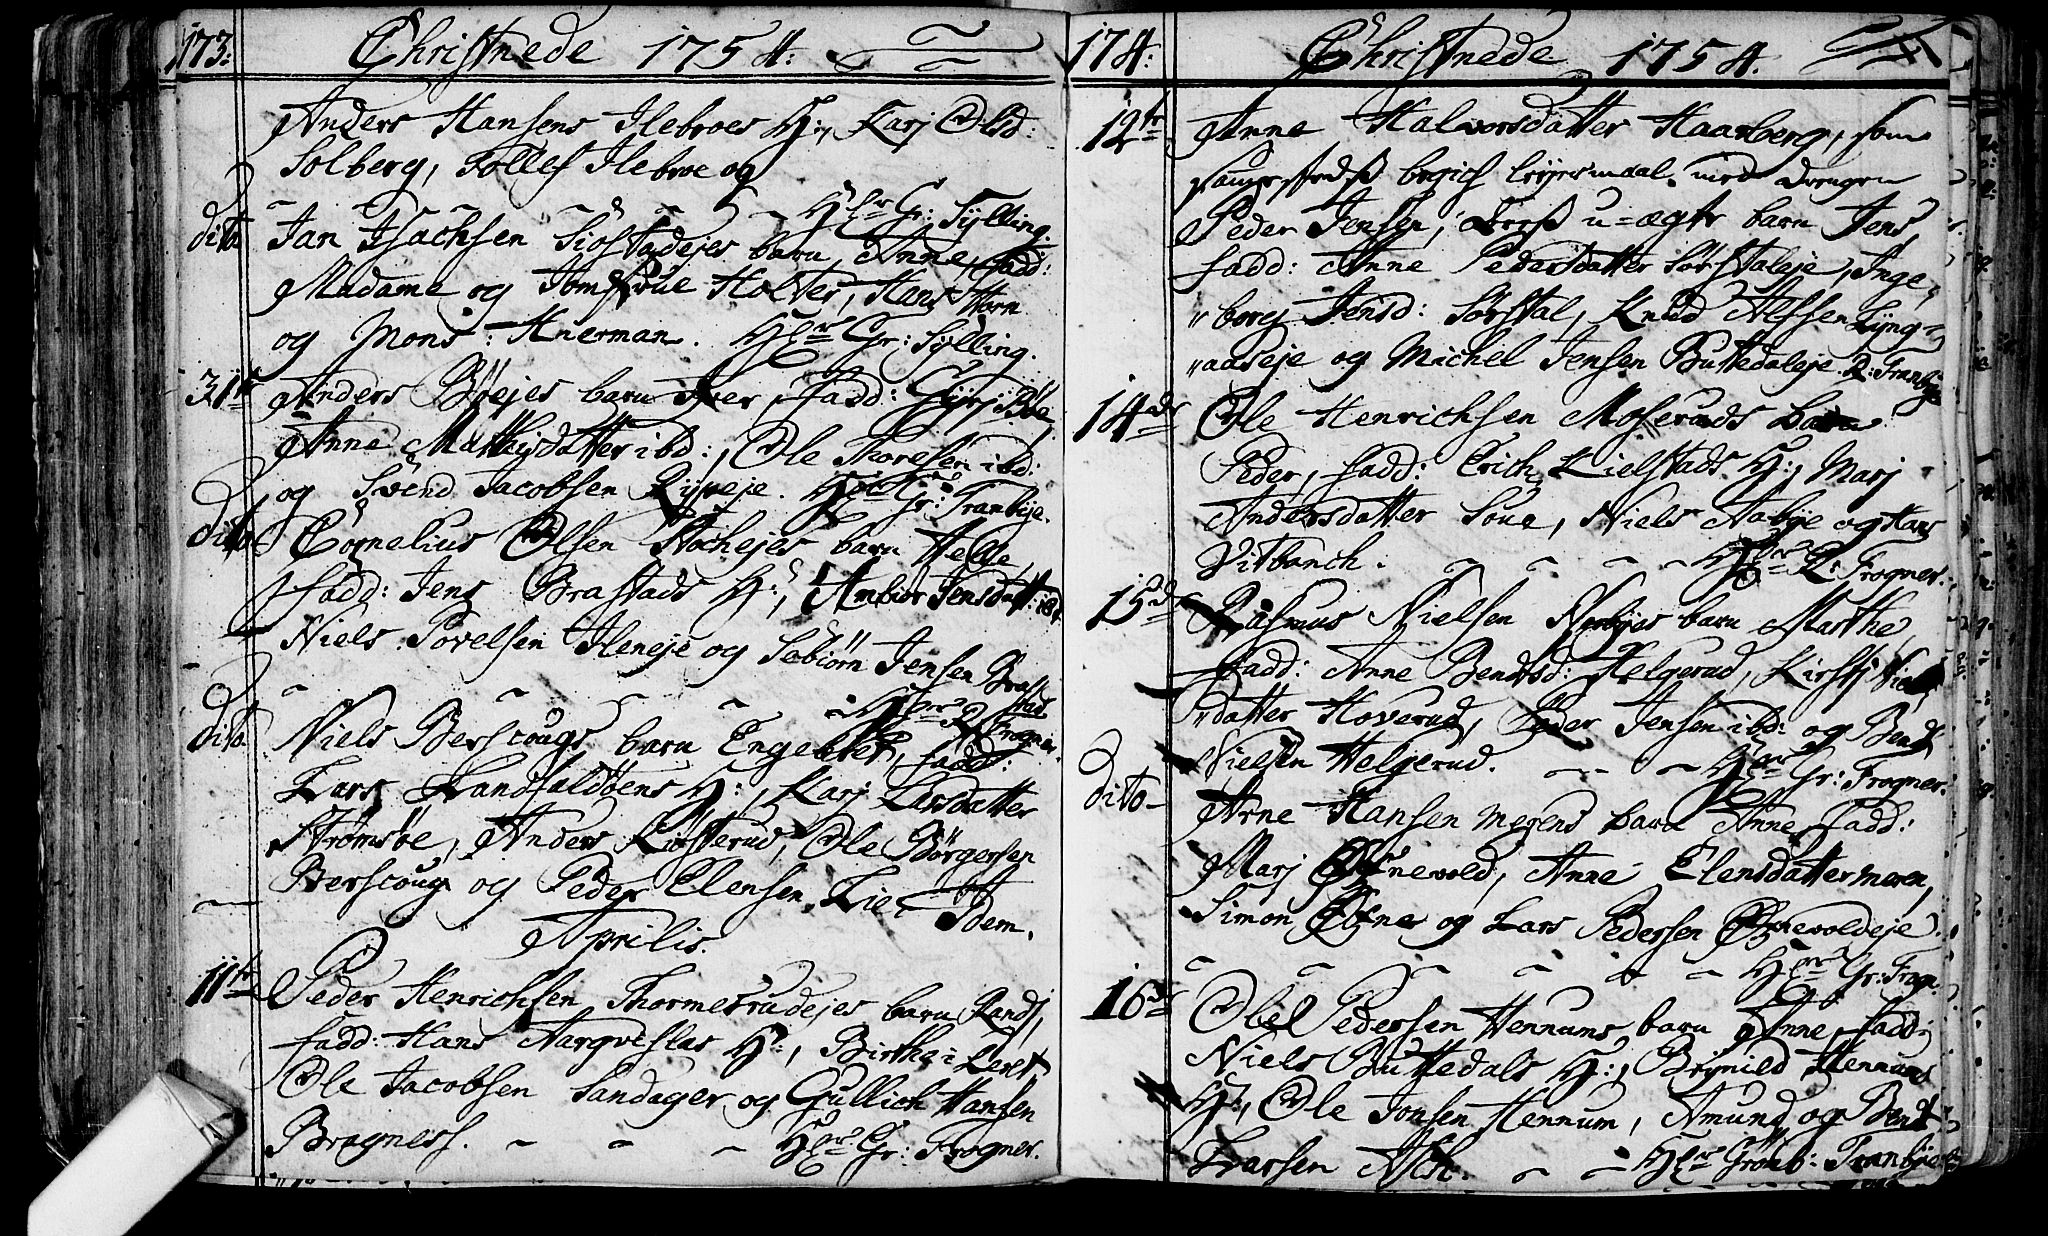 173. Christnede 1754.
Anders Hansens Ilebroes H:, Karj Olsd:
Solberg, Tollef Ilebroe og
Hr Gr: Sylling.
dito Jan Isachsen Siøstadejes barn Anne, fadd:
Madame og Jomfrue Holter, Hans Horn
og Mons: Knerman. Hr Gr: Sylling.
31te Anders Bøejes barn Iver, fadd: Gyrj Bøe
Anne Mathisdatter ibd:, Ole Thoresen ibd:
og Svend Jacobsen Rypeje. Hr Gr: Tranbye.
dito Cornelius Olsen Stochejes barn Helle,
fadd: Jens Brastads H:, Ambior Jensdatt: ibd
Niels Povelsen Ileneje og Søbiørn Jensen Brastad
Hr R: Frogner.
dito Niels Berscougs barn Engebret, fadd:
Lars Landfaldøens H:, Karj Larsdatter
Strømsøe, Anders Kiøsterud, Ole Børgersen
Berscoug og Peder Elensen Lie. Idem.
Aprilis.
11te Peder Henrichsen Thormesrudejes barn Randj,
fadd: Hans Aarqveslas H:, Birtha i Leret,
Ole Jacobsen Sandager og Gullich Hansen
Bragness. Hr Gr: Frogner.
174. Christnede 1754.
12te Anne Halvorsdatter Haarberg, som
begich leyersmaal med drengen
Peder Jensen, u=ægte barn Jens,
fadd: Anne Pedersdatter Sørstaleje, Inge-
borg Jensd: Sørstal, Knud Alfsen Lyng-
aaseje og Michel Jensen Buttedaleje. R: Tranbye
14de Ole Henrichsen Moseruds barn
Peder, fadd: Erich Kielstads H:, Marj
Andersdatter Soua, Niels Aabye og Hans
Vitbanch. Hr R: Frogner.
15de Rasmus Nielsen Nerbyes barn Marthe
fadd: Anne Bendtsd: Helgerud, Kirstj Niels
datter Hoverud, Peder Jensen ibd: og Bendt
Nielsen Helgerud. Hr Gr: Frogner.
dito Arne Hansen Merens barn Anne, fadd:
Marj Øfnevold, Anne Elensdatter Meren,
Simon Øfne og Lars Pedersen Øfnevoldeje.
Hr Gr: Frogn.
16de Obel Pedersen Hennums barn Anne, fadd:
Niels Buttedals H:, Brynild Hennums
H:, Ole Jonsen Hennum, Amund og Bendt
Larsen Ask. Hr Grønb: Tranbye.